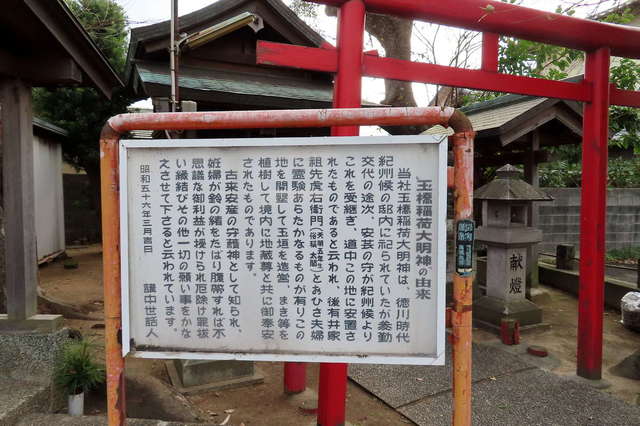 玉橋稲荷大明神の由来
当社玉橋稲荷大明神は、徳川時代
紀州候の邸内に祀られていたが参勤
交代の途次、安芸の守が紀州候より
これを受継ぎ、道中この地に安置さ
れたものであると云われ、後有井家
祖先虎右衛門(俗称 太郎)とあひさ夫婦
に霊験あらたかなるもの有りこの
地を開墾して玉垣を造営、まき等を
植樹して境内に地蔵尊と共に御奉安
されたものであります。
古来安産の守護神として知られ、
妊婦が鈴の緒をたばり腹帯すれば不
思議な御利益が授けられ厄除け罷抜
い縁結びその他一切の願い事をかな
えさせて下さると云われています。
昭和五十六年三月吉日
講中世話人
献燈